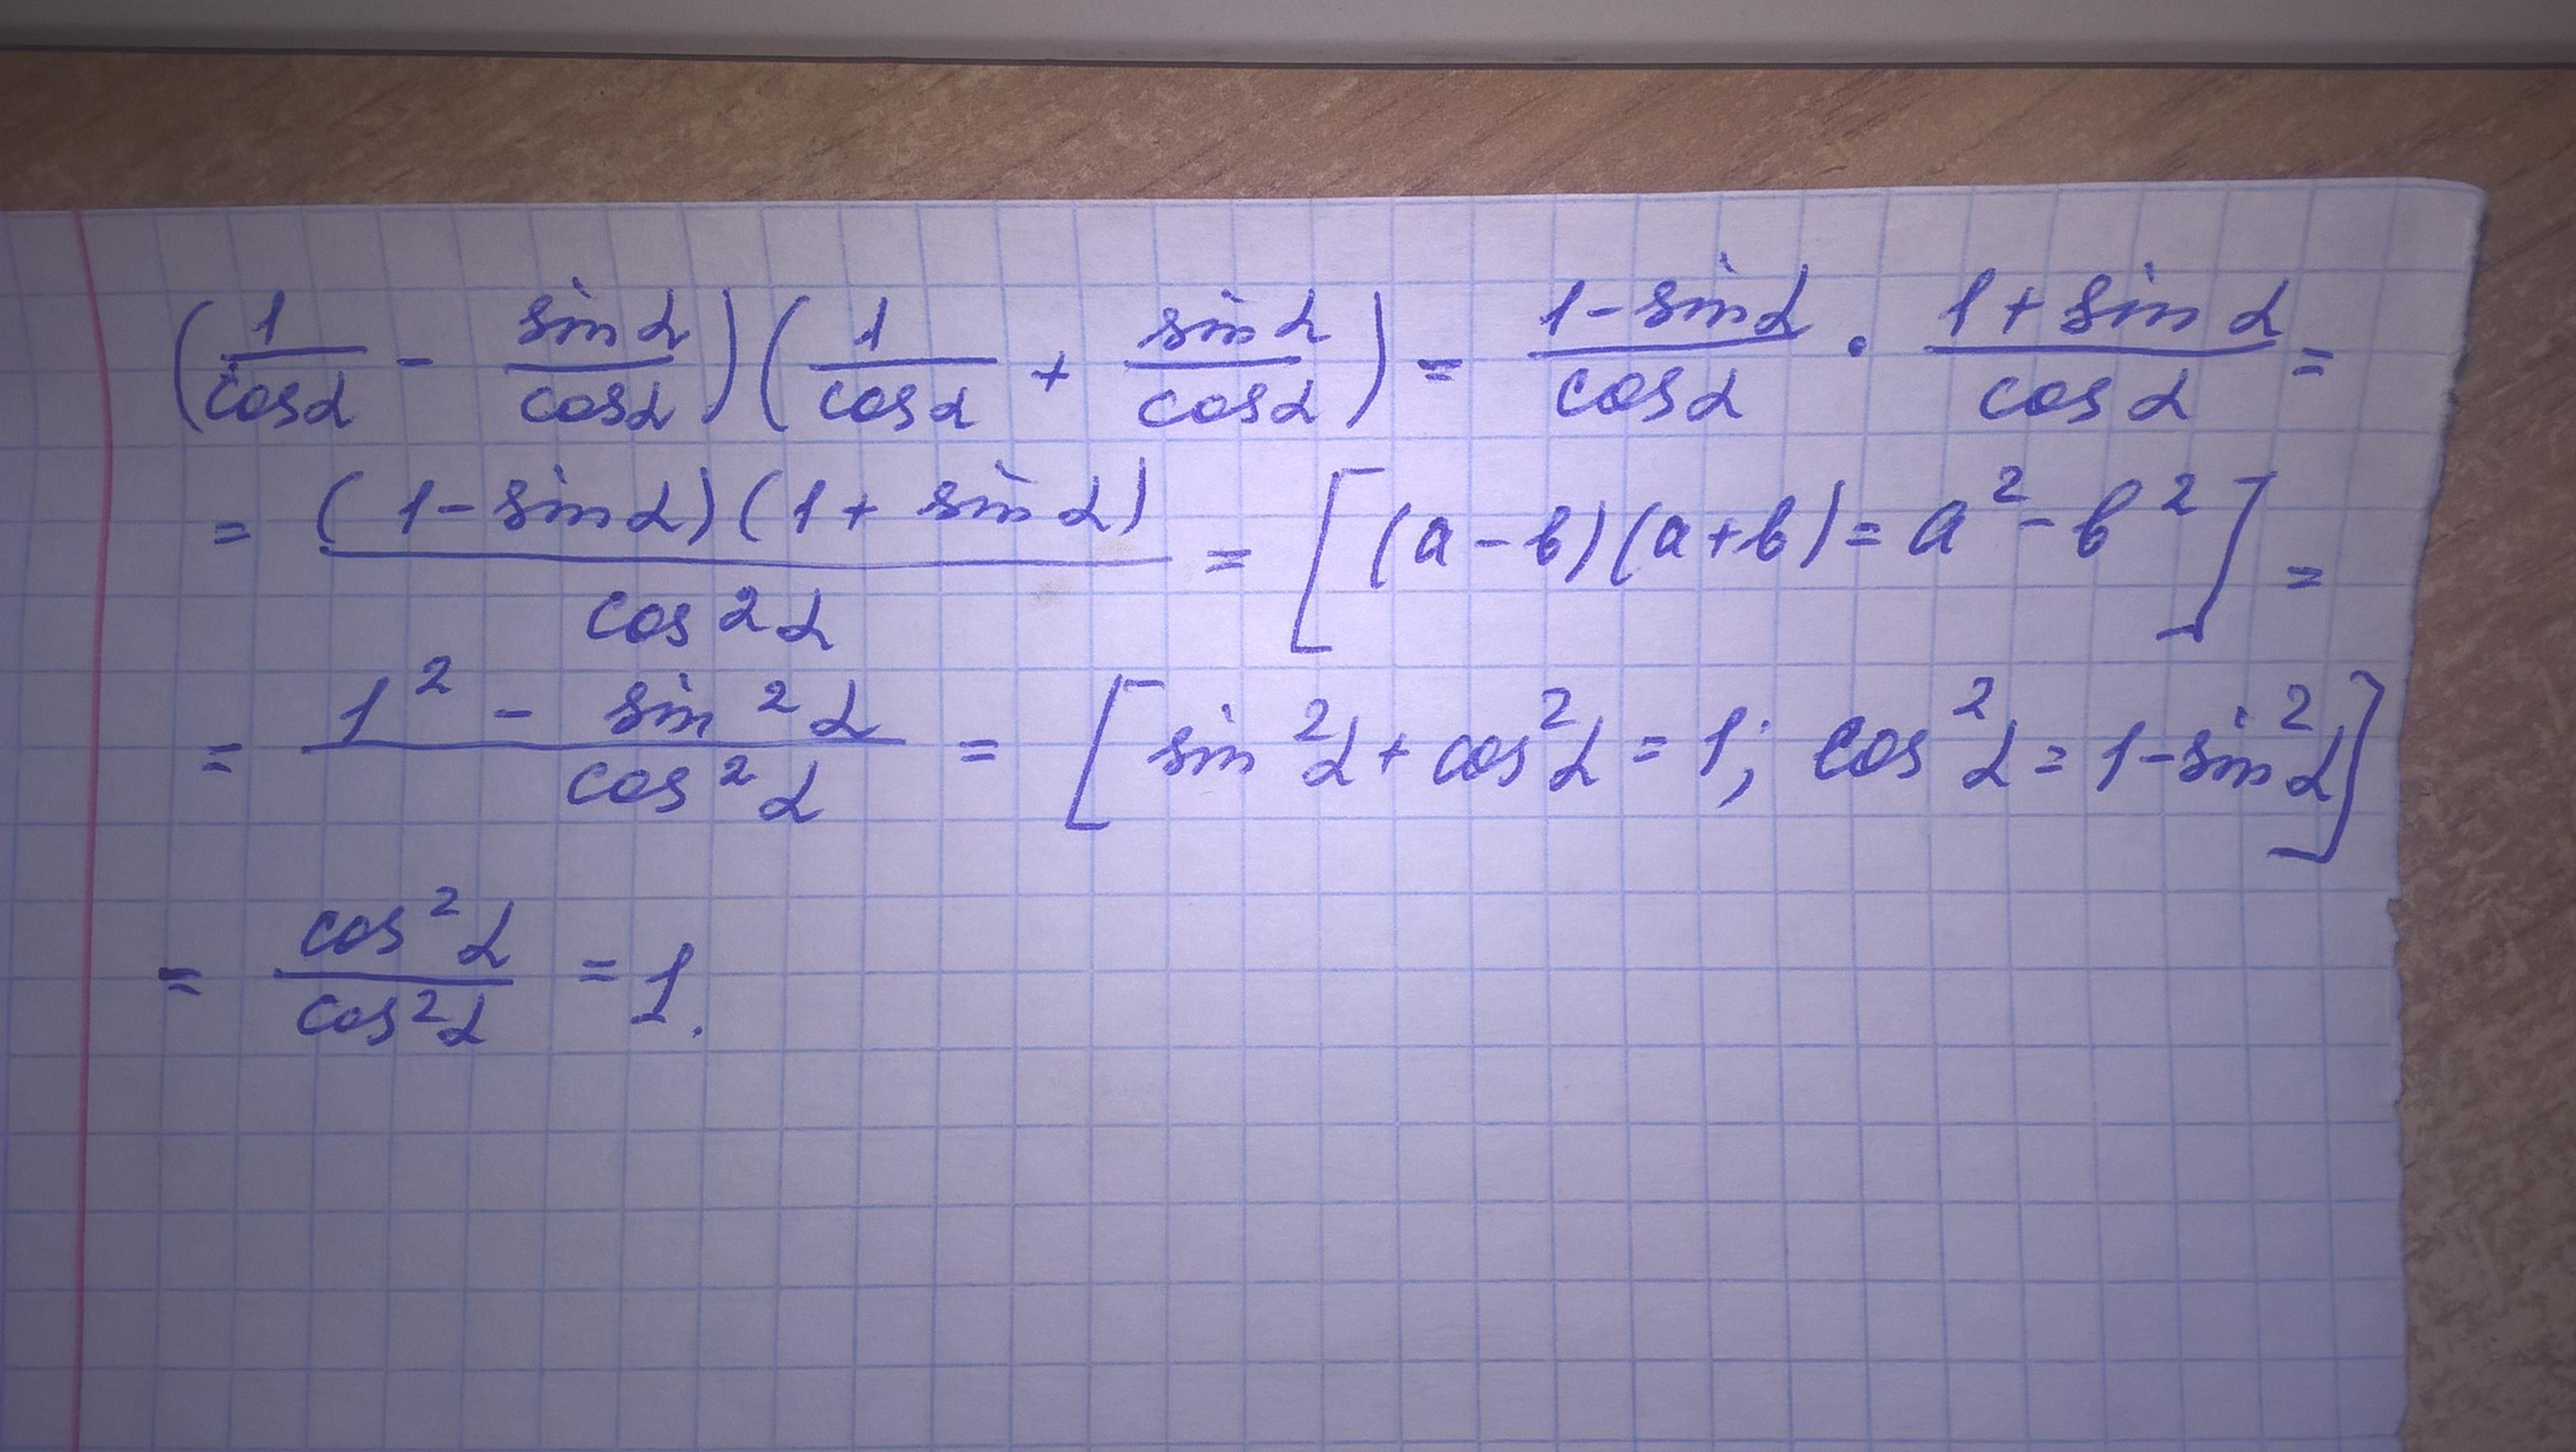 (1/cosα - sinα/cosα)(1/cosα + sinα/cosα) = (1-sinα)/cosα · (1+sinα)/cosα =
= (1-sinα)(1+sinα)/cos²α = [(a-b)(a+b)=a²-b²] =
= (1² - sin²α)/cos²α = [sin²α+cos²α=1; cos²α=1-sin²α]
= cos²α/cos²α = 1.